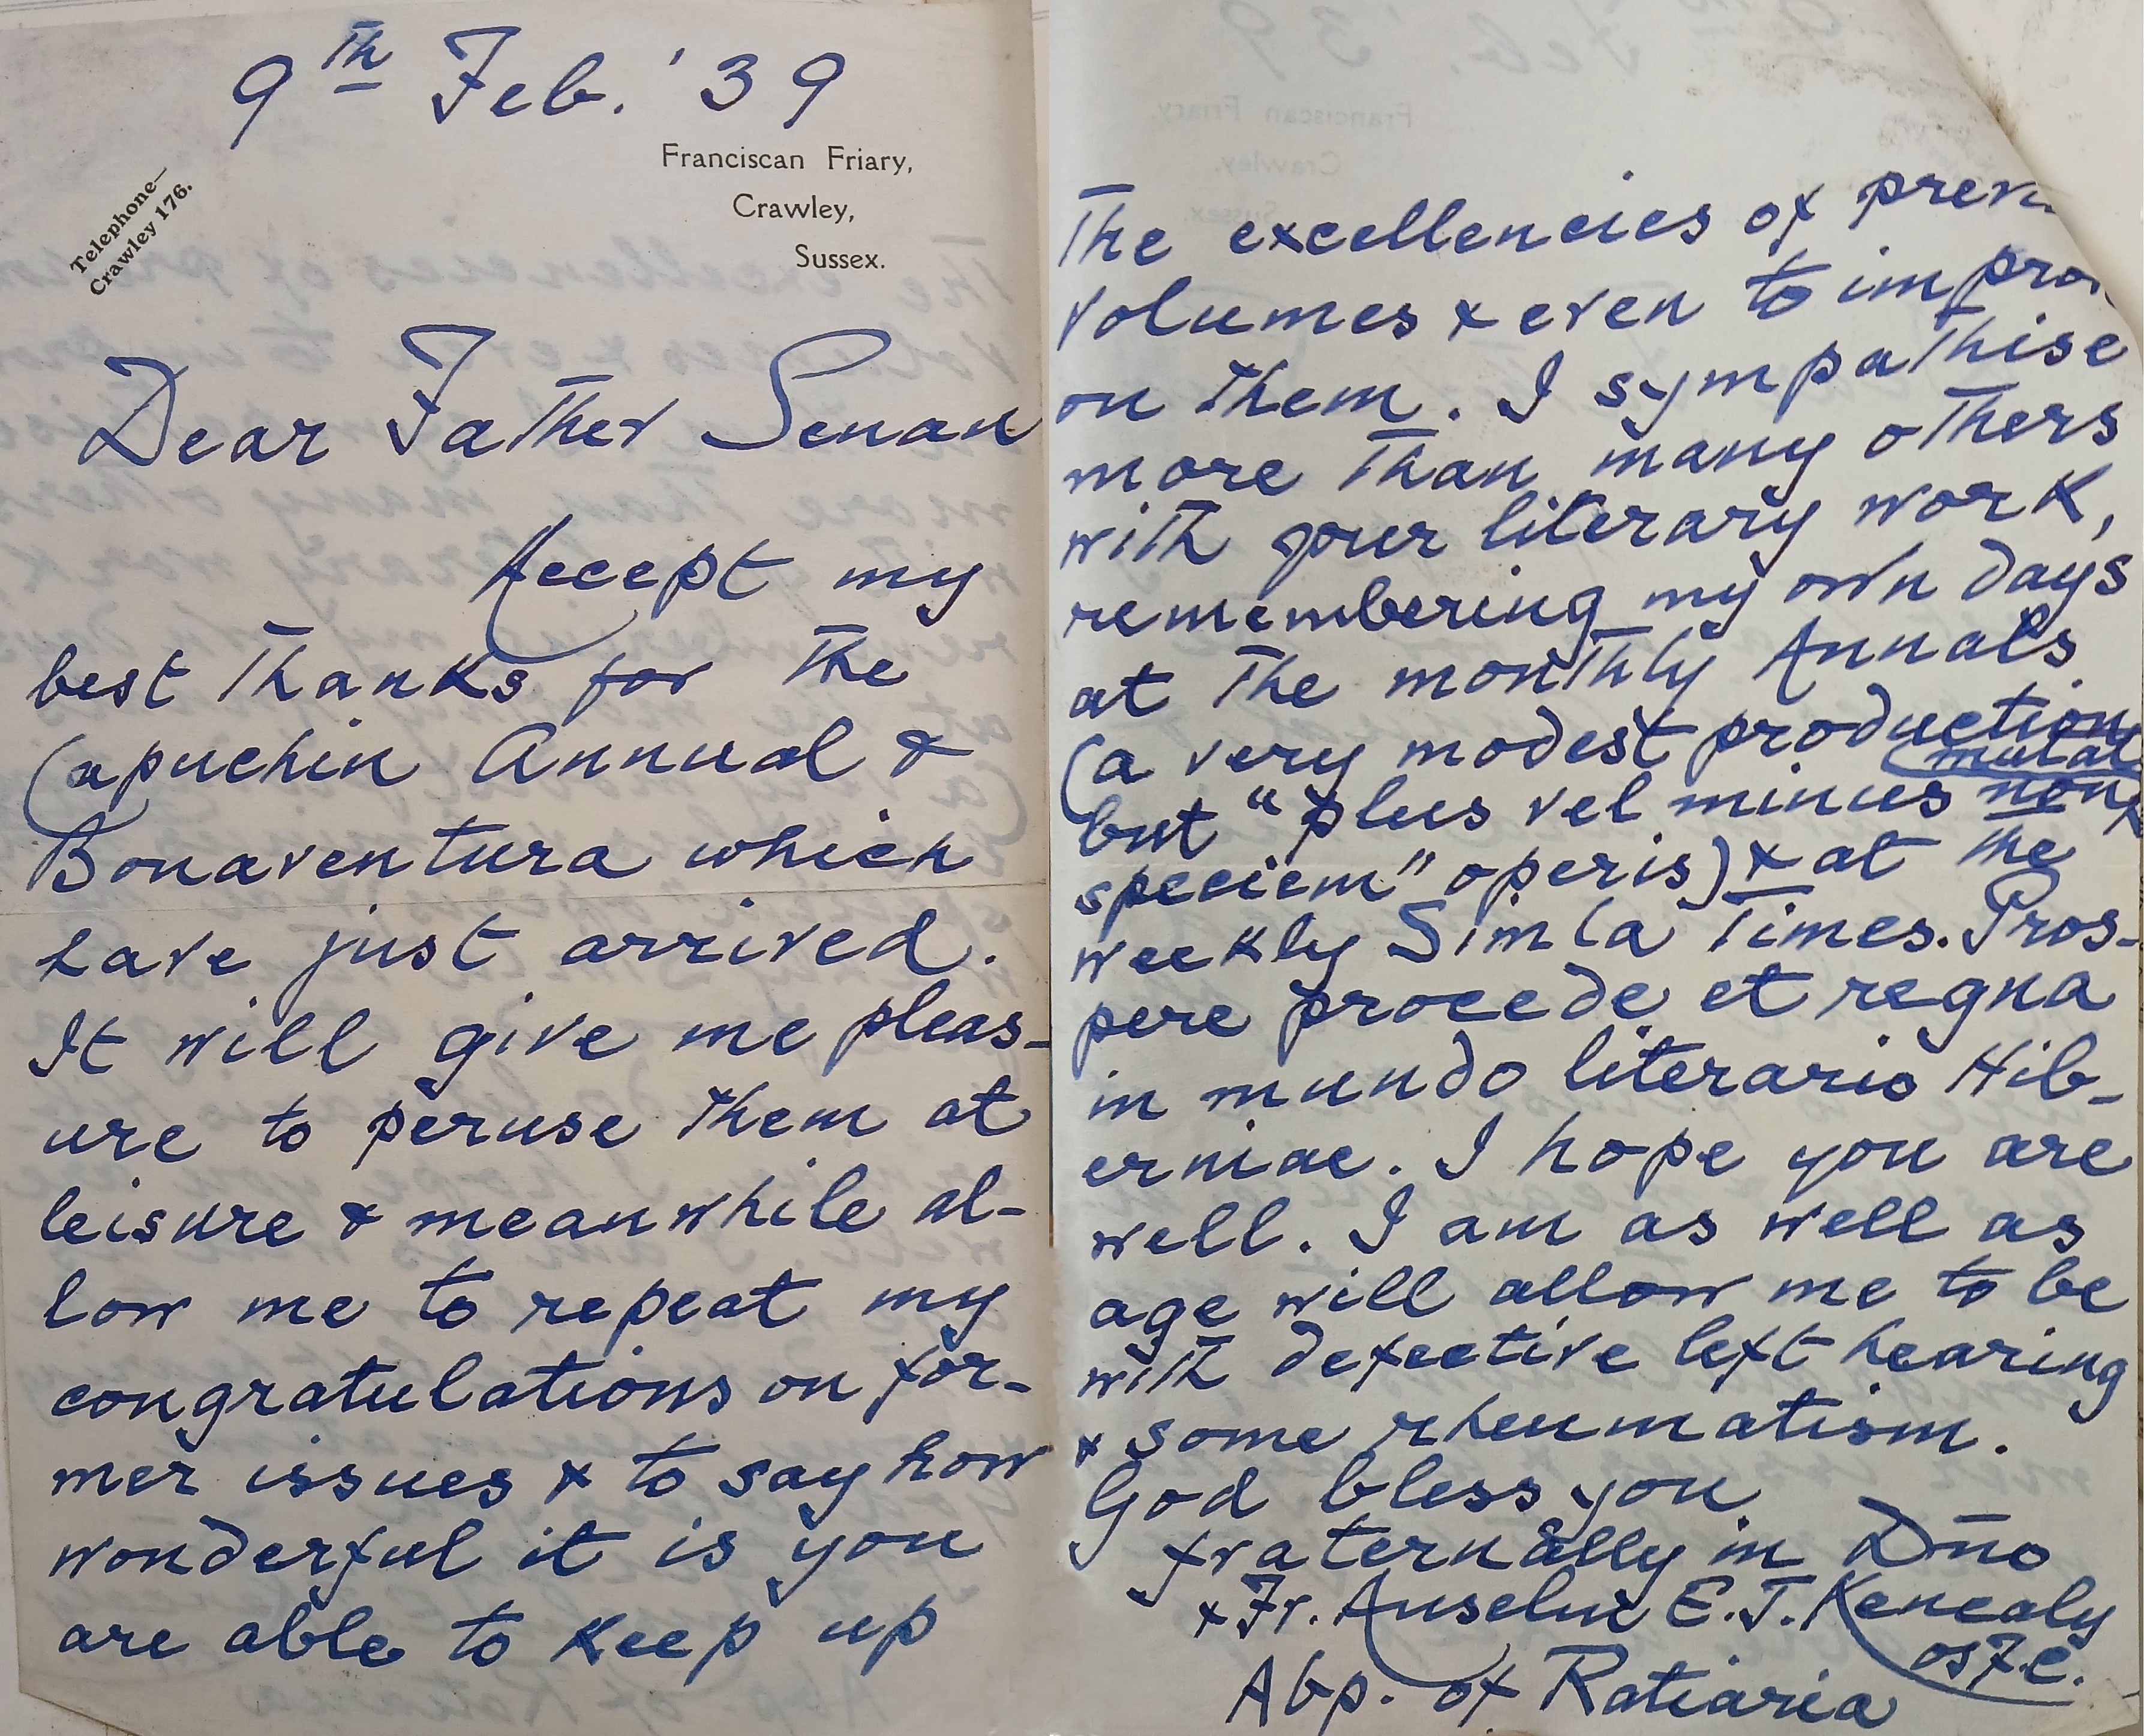 9th Feb. '39
Telephone—
Crawley 176.
Franciscan Friary,
Crawley,
Sussex.
Dear Father Senan
Accept my
best thanks for the
Capuchin Annual &
Bonaventura which
have just arrived.
It will give me pleas-
ure to peruse them at
leisure & meanwhile al-
low me to repeat my
congratulations on for-
mer issues & to say how
wonderful it is you
are able to keep up
the excellencies of
volumes & even to
on them. I sympathise
more than many others
with your literary work,
remembering my own days
at the monthly Annals
(a very modest production
but "plus vel minus non
mutat
speciem" operis) & at the
weekly Simla Times. Pros-
pere procede et regna
in mundo literario Hib-
erniae. I hope you are
well. I am as well as
age will allow me to be
with defective left hearing
& some rheumatism.
God bless you
fraternally in Dn̄o
+Fr. Anselm E.J. Kenealy
OSFC.
Abp. of Ratiaria